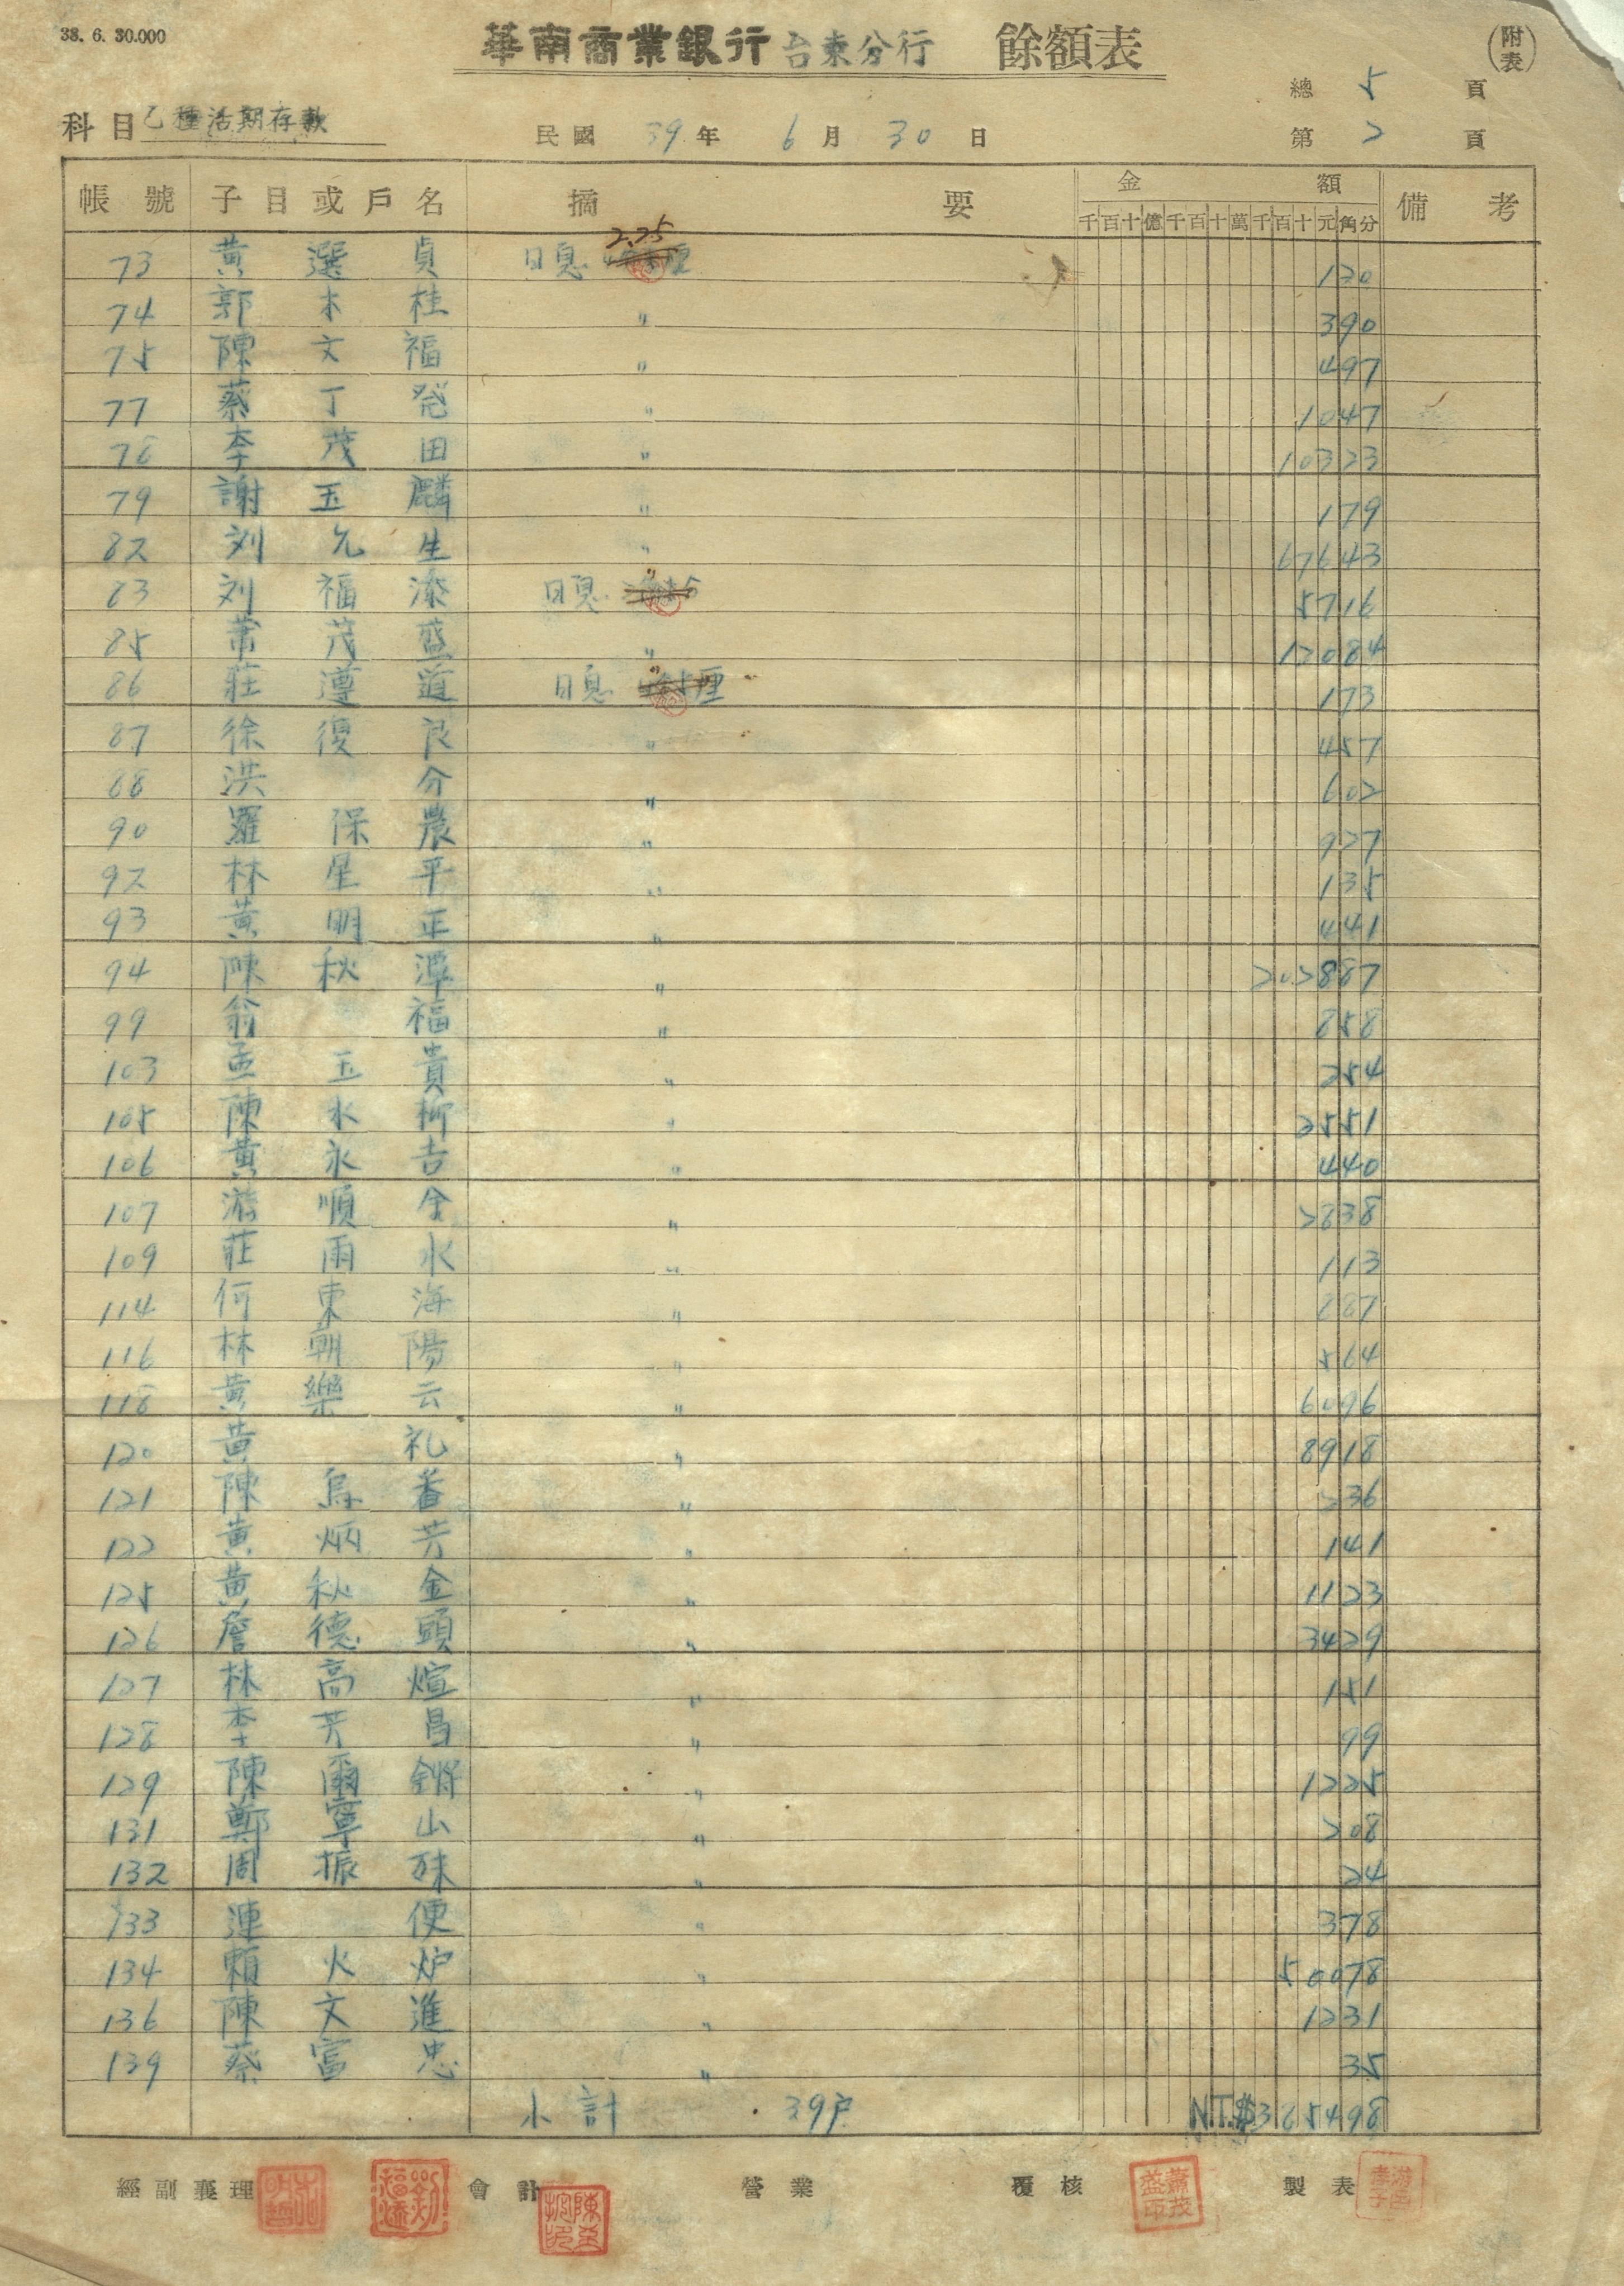 38. 6. 30.000
華南商業銀行 台東分行 餘額表
(附表)
總 5 頁
科目 乙種活期存款
民國 39 年 6 月 30 日
第 2 頁
帳號 子目或戶名 摘要 金額 備考
千百十億千百十萬千百十元角分
2.25
73 黃選貞 日息 厘 120
74 郭木桂 〃 390
75 陳文福 〃 497
77 蔡丁発 〃 1047
78 李茂田 〃 10323
79 謝玉麟 〃 179
82 刘允生 〃 67643
83 刘福漆 日息 〃 5716
85 蕭茂盛 〃 12084
86 莊遵道 日息 〃 厘 173
87 徐復良 〃 457
88 洪分 〃 602
90 羅保農 〃 927
92 林星平 〃 135
93 黃明正 〃 441
94 陳秋潭 〃 202887
99 翁福 〃 858
103 孟玉貴 〃 254
105 陳水柳 〃 2551
106 黃永吉 〃 440
107 游順金 〃 2838
109 莊雨水 〃 113
114 何東海 〃 287
116 林朝陽 〃 564
118 黃樂云 〃 6096
120 黃礼 〃 8918
121 陳烏番 〃 236
122 黃炳芳 〃 141
125 黃秋金 〃 1123
126 詹德頭 〃 3429
127 林高煊 〃 151
128 李芳昌 〃 99
129 陳爾鏘 〃 1225
131 鄭寧山 〃 208
132 周振 〃 24
133 連便 〃 378
134 賴火炉 〃 50078
136 陳文進 〃 1231
139 蔡富忠 〃 35
小計 39戶 N.T.$365498
經副襄理 會計 營業 覆核 蕭茂盛印 製表